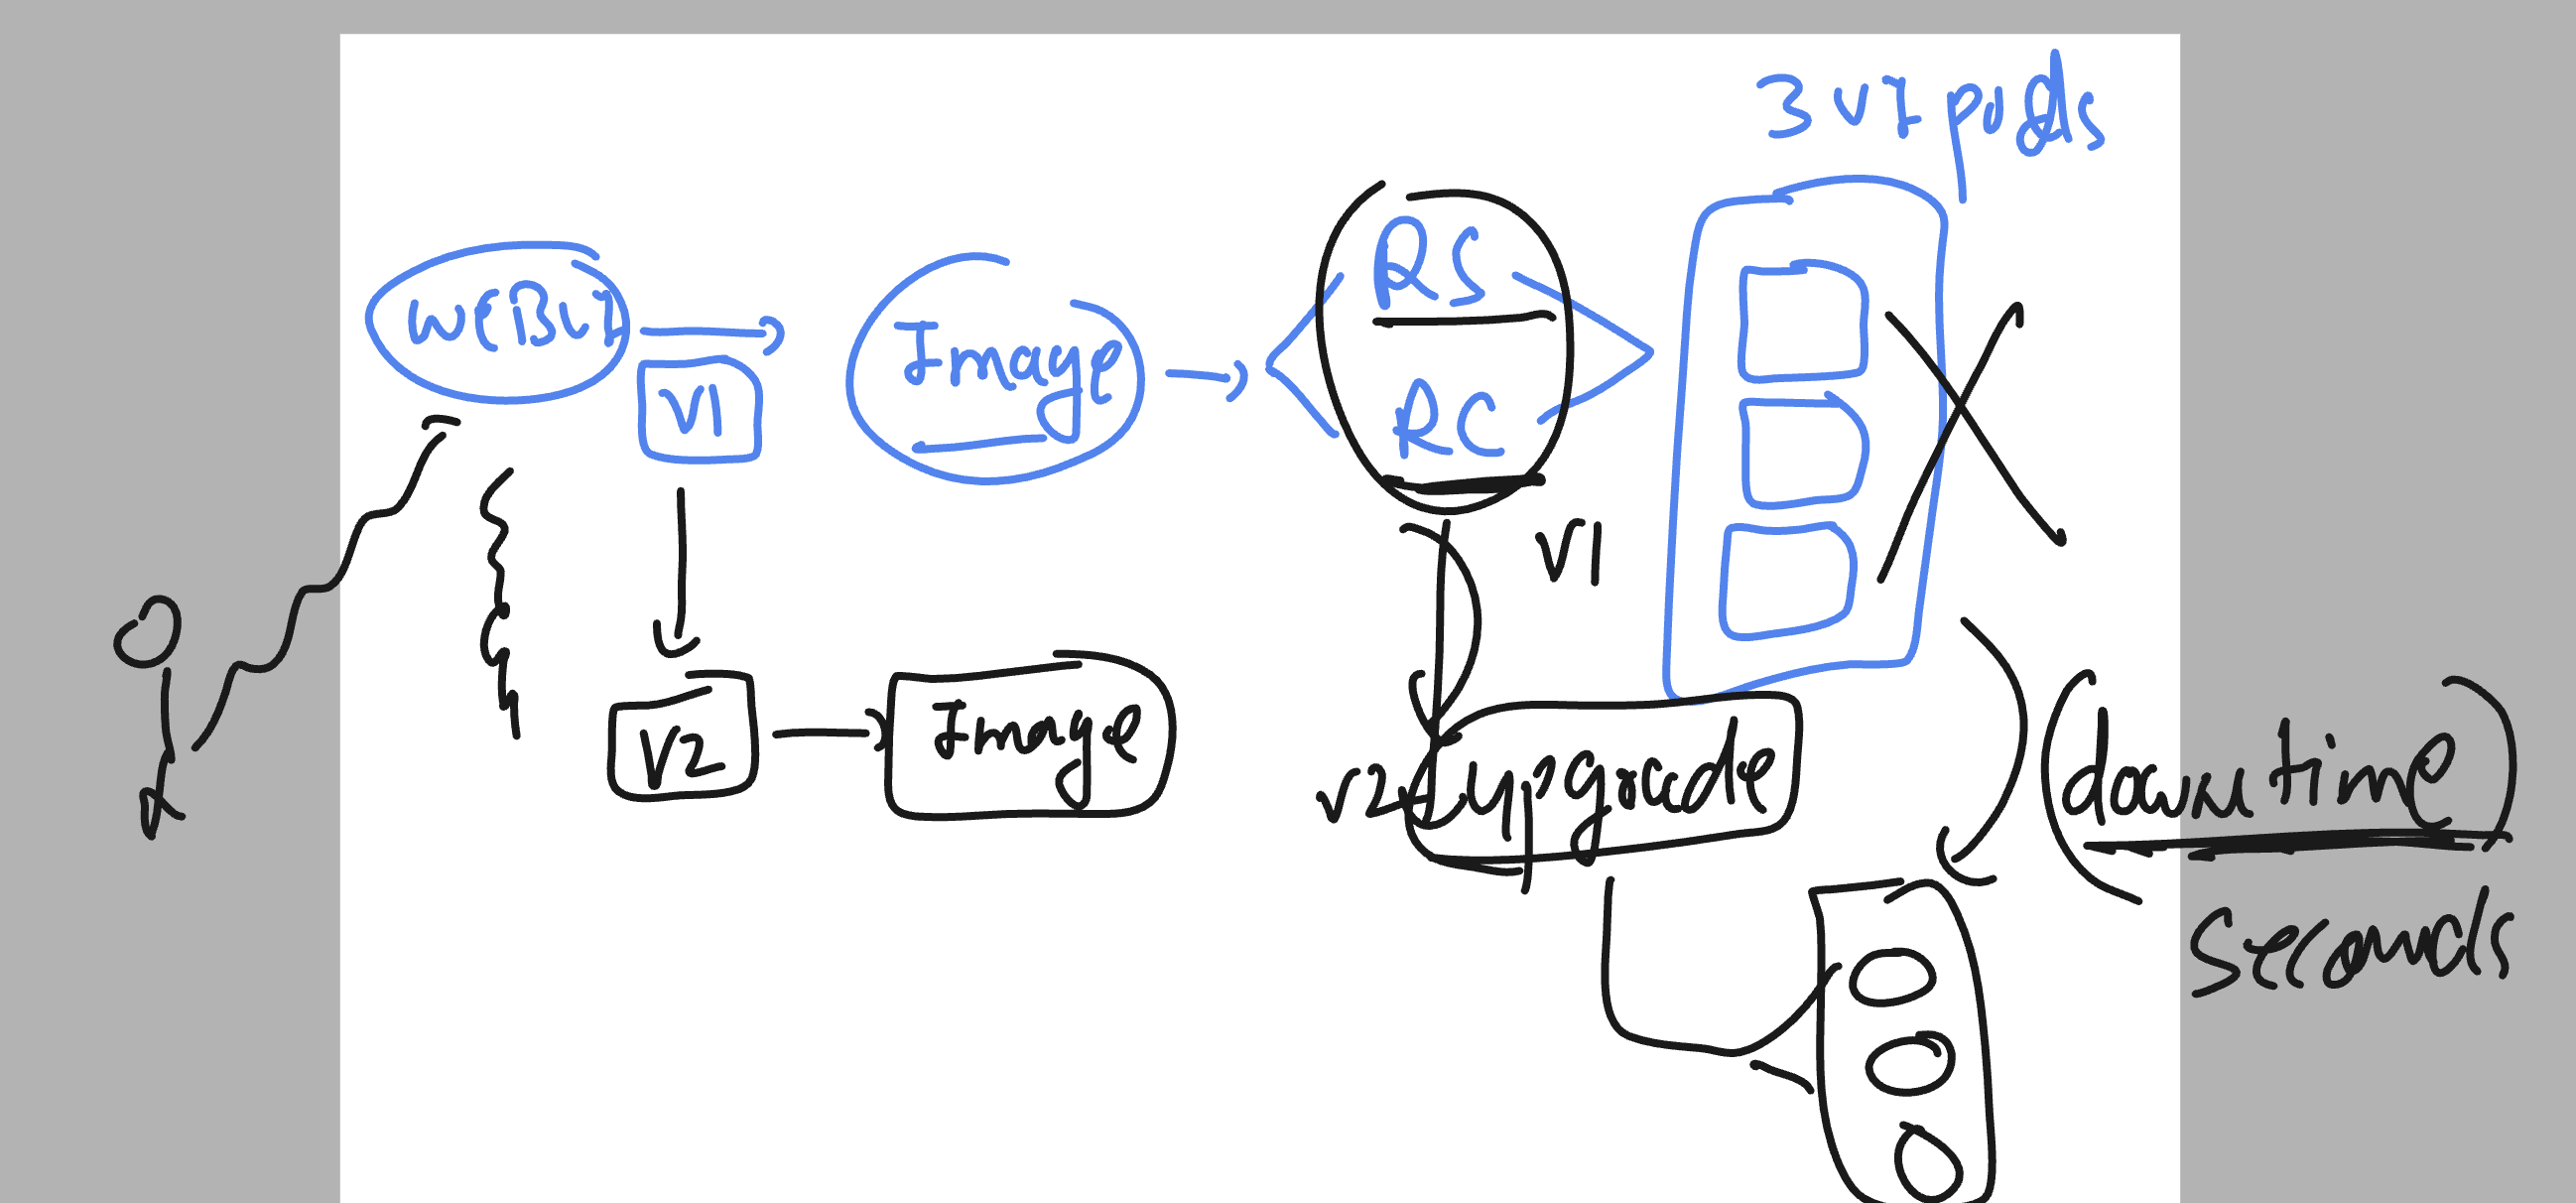 3 v1 pods
RS
Image
V1
RC
V1
V2
Image
v2
upgrade
(downtime)
seconds